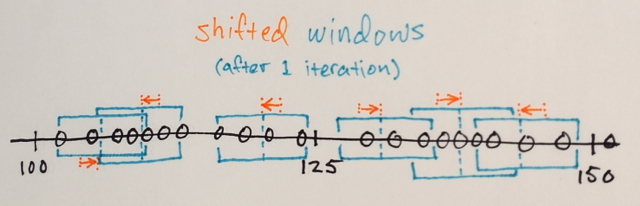 shifted windows
(after 1 iteration)
100
125
150